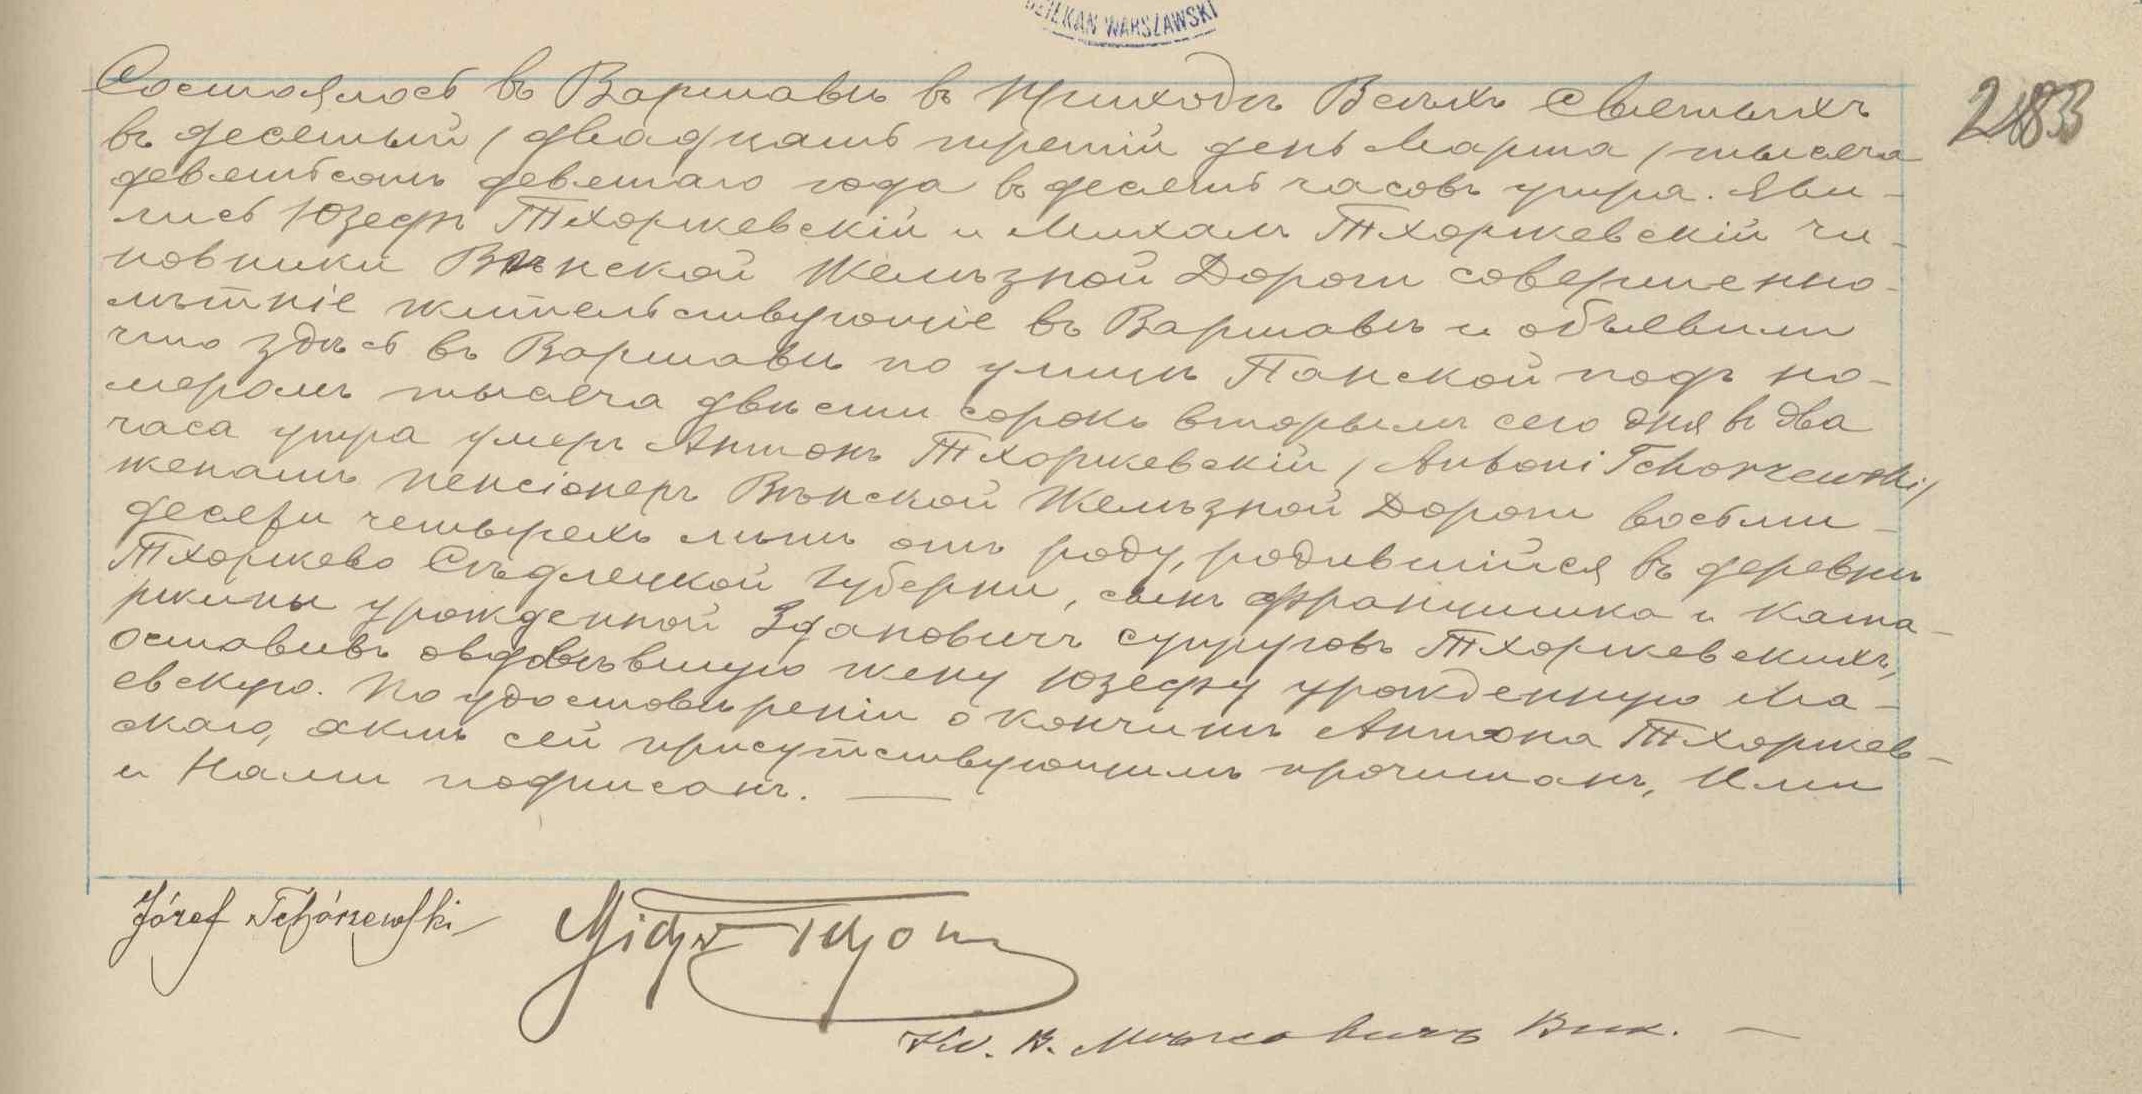 DZIEKAN WARSZAWSKI
Состоялось въ Варшавѣ въ Приходѣ Всѣхъ Святыхъ
283
въ десятый / двадцать третій день Марта / тысяча
девятьсотъ девятаго года въ десять часовъ утра. Яви-
лись Юзефъ Тхоржевскій и Михалъ Тхоржевскій чи-
новники Вѣнской Желѣзной Дороги совершенно-
лѣтніе жительствующіе въ Варшавѣ и объявили
что здѣсь въ Варшавѣ по улицѣ Панской подъ но-
меромъ тысяча двѣсти сорокъ вторымъ сего дня въ два
часа утра умеръ Антонъ Тхоржевскій / Antoni Tchorzewski /
женатъ пенсіонеръ Вѣнской Желѣзной Дороги восьми-
десяти четырехъ лѣтъ отъ роду, родившійся въ деревнѣ
Тхоржево Сѣдлецкой Губерни, сынъ Францишка и Ката-
ржины урожденной Здановичъ супруговъ Тхоржевскихъ,
оставивъ овдовѣвшую жену Юзефу урожденную Ма-
евскую. По удостовѣреніи о кончинѣ Антона Тхоржев-
скаго, актъ сей присутствующимъ прочитанъ, Ими
и Нами подписанъ. —
Józef Tchórzewski
Кс. В. Вик. —